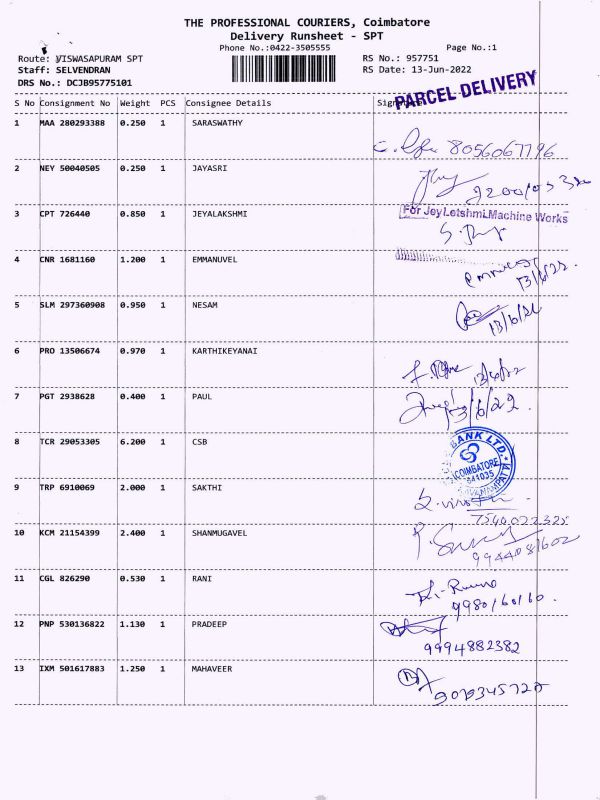 THE PROFESSIONAL COURIERS, Coimbatore
Delivery Runsheet - SPT
Phone No.:0422-3505555 Page No.:1
Route: VISWASAPURAM SPT RS No.: 957751
Staff: SELVENDRAN RS Date: 13-Jun-2022
DRS No.: DCJB95775101
PARCEL DELIVERY
S No Consignment No Weight PCS Consignee Details
1 MAA 280293388 0.250 1 SARASWATHY
8056067796
2 NEY 50040505 0.250 1 JAYASRI
3 CPT 726440 0.850 1 JEYALAKSHMI
For JeyLetshmi Machine Works
4 CNR 1681160 1.200 1 EMMANUVEL
13/6/22.
5 SLM 297360908 0.950 1 NESAM
13/6/22
6 PRO 13506674 0.970 1 KARTHIKEYANAI
7 PGT 2938628 0.400 1 PAUL
13/6/22.
8 TCR 29053305 6.200 1 CSB
BANK LTD.
COIMBATORE
641035
9 TRP 6910069 2.000 1 SAKTHI
7540022325
10 KCM 21154399 2.400 1 SHANMUGAVEL
9944081602
11 CGL 826290 0.530 1 RANI
9980160160.
12 PNP 530136822 1.130 1 PRADEEP
9994882382
13 IXM 501617883 1.250 1 MAHAVEER